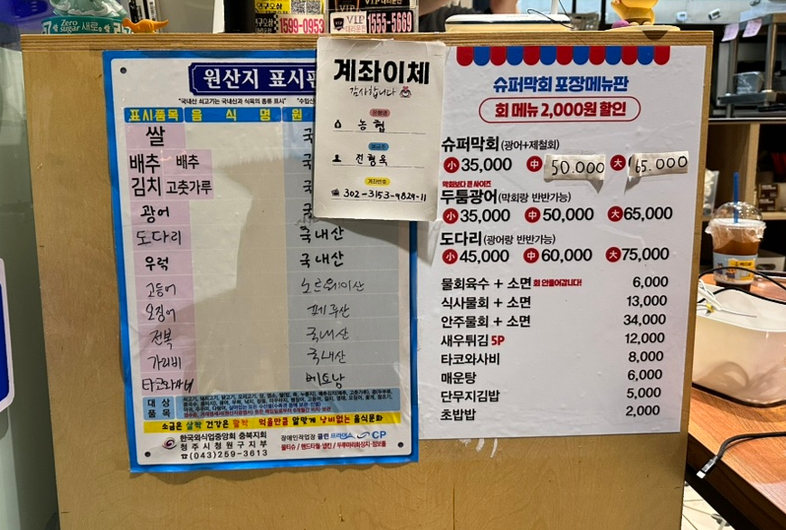 Zero
sugar 새로
1599-0953
VIP
1555-5669
원산지 표시판
"국내산 쇠고기는 국내산과 식육의 종류 표시"
표시품목 음 식 명 원
쌀
배추 배추
김치 고춧가루
광어
도다리 국내산
우럭 국내산
고등어 노르웨이산
오징어 페루산
전복 국내산
가리비 국내산
타코와사비 베트남
대상
품목
소금은 살짝 건강은 활짝 먹을만큼 알맞게 낭비없는 음식문화
한국외식업중앙회 충북지회
청주시청원구지부
☎(043)259-3613
CP
계좌이체
감사합니다
은행명
농협
예금주
전형옥
계좌번호
302-3153-9829-11
슈퍼막회 포장메뉴판
회 메뉴 2,000원 할인
슈퍼막회 (광어+제철회)
小 35,000 中 50.000 大 65.000
막회보다 큰 사이즈
두툼광어 (막회랑 반반가능)
小 35,000 中 50,000 大 65,000
도다리 (광어랑 반반가능)
小 45,000 中 60,000 大 75,000
물회육수 + 소면 회 안들어갑니다! 6,000
식사물회 + 소면 13,000
안주물회 + 소면 34,000
새우튀김 5P 12,000
타코와사비 8,000
매운탕 6,000
단무지김밥 5,000
초밥밥 2,000